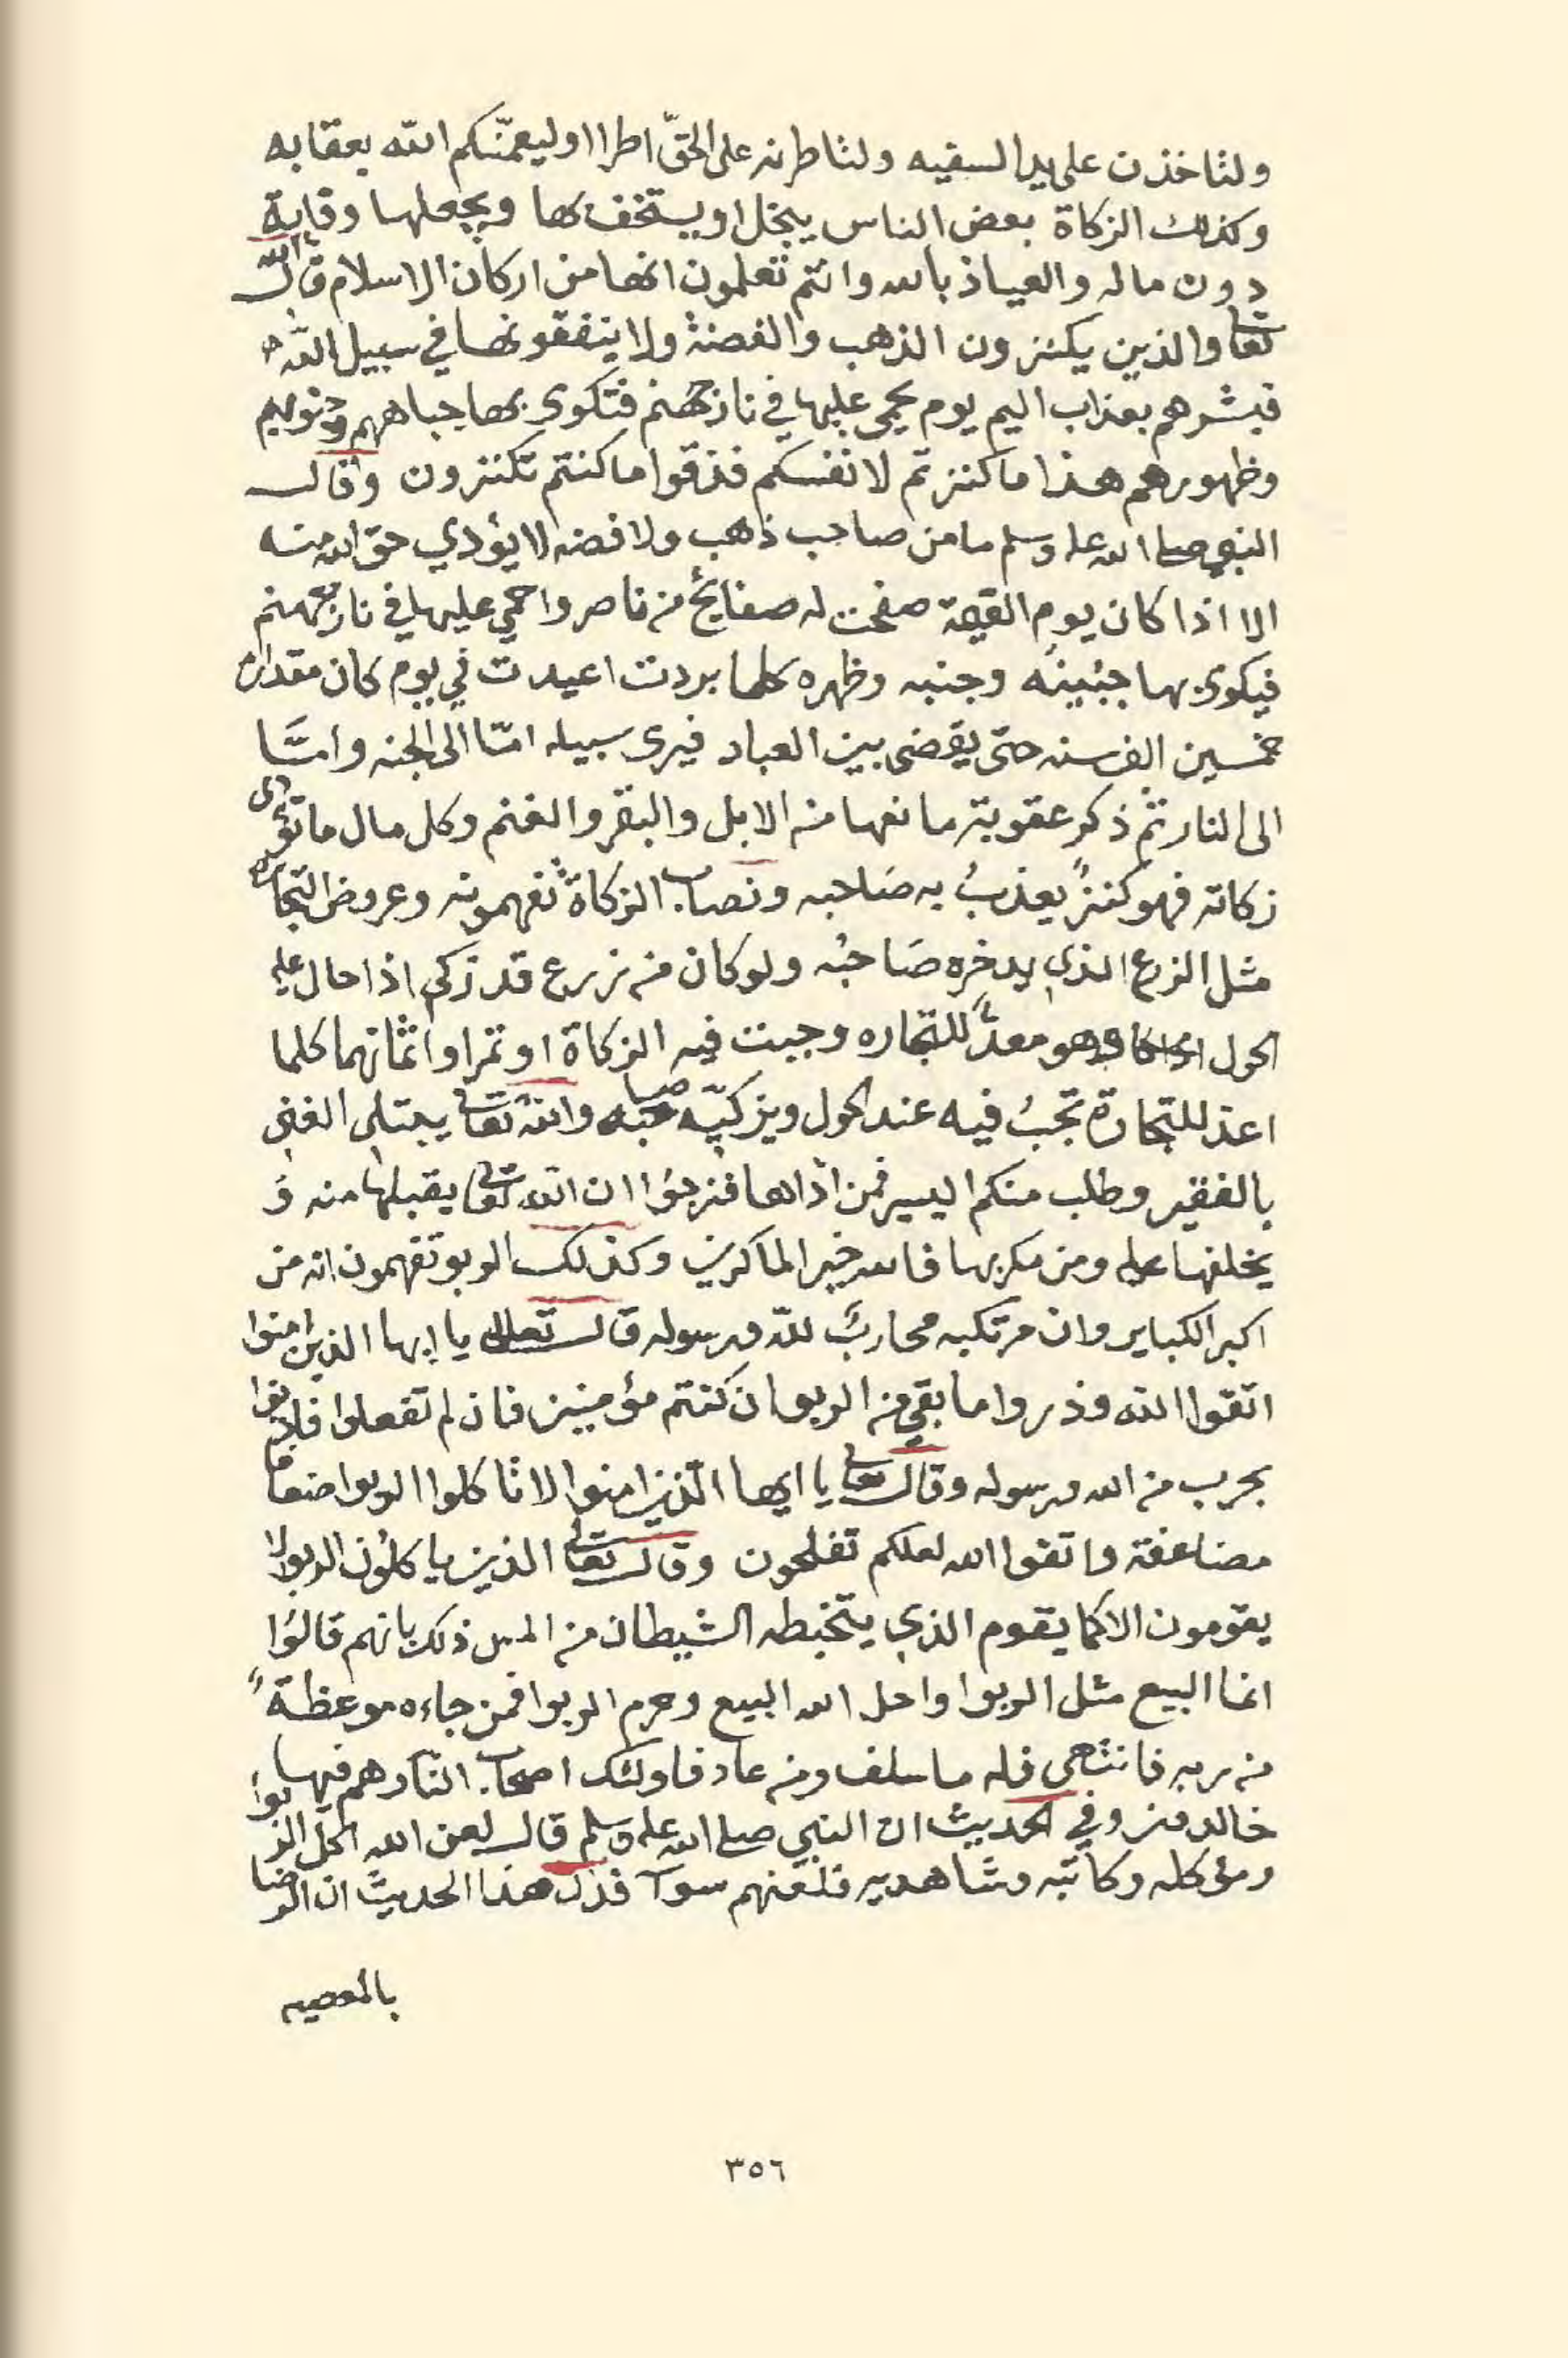 ولتاخذن على يد السفيه ولتاطرنه على الحقّ اطرا او ليعمّنكم الله بعقابه
وكذلك الزكاة بعض الناس يبخل او يستخف بها ويجعلها وقاية
دون ماله والعياذ بالله وانتم تعلمون انها من اركان الاسلام قال الله
تعالى والذين يكنزون الذهب والفضة ولا ينفقونها في سبيل الله
فبشرهم بعذاب اليم يوم يحمى عليها في نار جهنم فتكوى بها جباههم وجنوبهم
وظهورهم هذا ما كنزتم لانفسكم فذقوا ما كنتم تكنزون وقال
النبي صلى الله عليه وسلم ما من صاحب ذهب ولا فضه لا يؤدي حق الله منه
الا اذا كان يوم القيمة صفحت له صفايح من نار واحمي عليها في نار جهنم
فيكوى بها جبينه وجنبه وظهره كلما بردت اعيدت في يوم كان مقداره
خمسين الف سنه حتى يقضى بين العباد فيرى سبيله امّا الى الجنه وامّا
الى النار ثم ذكر عقوبة مانعها من الابل والبقر والغنم وكل مال ما تؤدى
زكاته فهو كنزٌ يعذبُ به صاحبه ونصاب الزكاة تفهمونه وعروض التجاره
مثل الزرع الذي يدخره صَاحبُه ولو كان من زرع قد زكى اذا حال عليه
الحول وهو معدٌّ للتجاره وجبت فيه الزكاة او تمرا واثمانهما كلما
اعد للتجارة تجبُ فيه عند الحول ويزكيّه صاحبه والله تعالى يبتلى الغنى
بالفقير وطلب منكم اليسير فمن ادّاها فنرجوا ان الله تعالى يقبلها منه وَ
يخلفها عليه ومن مكر بها فالله خير الماكرين وكذلك الربو تفهمون انه من
اكبر الكباير وان مرتكبه محاربٌ لله ورسوله قال تعالى يا ايها الذين امنوا
اتقوا الله وذروا ما بقي من الربوا ان كنتم مؤمنين فان لم تفعلوا فاذنوا
بحرب من الله ورسوله وقال تعالى يا ايها الّذين امنوا لا تاكلوا الربوا اضعافا
مضاعفة واتقوا الله لعلكم تفلحون وقال تعالى الذين ياكلون الربوا لا
يقومون الا كما يقوم الذي يتخبطه الشيطان من المس ذلك بانهم قالوا
انما البيع مثل الربوا واحل الله البيع وحرم الربوا فمن جاءه موعظةً
من ربه فانتهى فله ما سلف ومن عاد فاولئك اصحاب النار هم فيها
خالدون وفي الحديث ان النبي صلى الله عليه وسلم قال لعن الله اكل الربوا
ومؤكله وكاتبه وشاهديه فلعنهم سوآ فدل هذا الحديث ان الرضا
بالمعصيه
٣٥٦